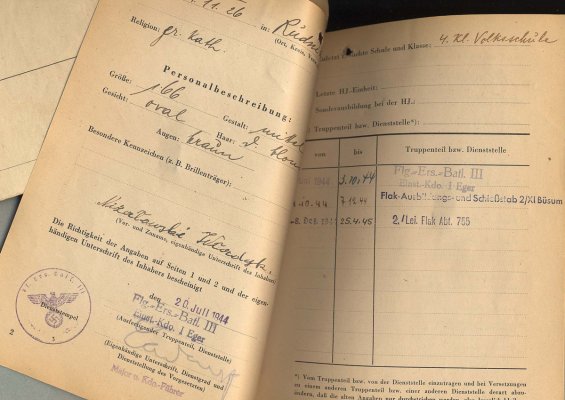 11.26 in: Rudne
Religion: gr. kath. (Ort, Kreis,
Personalbeschreibung:
Größe: 166 Gestalt: mittel
Gesicht: oval Haar: d. blond
Augen: braun
Besondere Kennzeichen (z. B. Brillenträger):
(Vor- und Zuname, eigenhändige Unterschrift des Inhabers)
Die Richtigkeit der Angaben auf Seiten 1 und 2 und der eigen-
händigen Unterschrift des Inhabers bescheinigt
den 20. Juli 1944
Flg.-Ers.-Batl. III
Elast.-Kdo. 1 Eger
(Ausfertigender Truppenteil, Dienststelle)
Dienststempel
(Eigenhändige Unterschrift, Dienstgrad und
Dienststellung des Vorgesetzten)
Major u. Kdo.-Führer
2
besuchte Schule und Klasse: 4. Kl. Volksschule
Letzte HJ.-Einheit:
Sonderausbildung bei der HJ.:
Truppenteil bzw. Dienststelle*):
von bis Truppenteil bzw. Dienststelle
1944 3.10.44 Flg.-Ers.-Batl. III
Elast.-Kdo. 1 Eger
10.44 7.12.44 Flak-Ausbildungs- und Schießstab 2/XI Büsum
8. Dez. 25.4.45 2./Lei. Flak Abt. 765
*) Vom Truppenteil bzw. von der Dienststelle einzutragen und bei Versetzungen
zu einem anderen Truppenteil bzw. einer anderen Dienststelle derart abzu-
ändern, daß die alten Angaben nur durchstrichen werden,